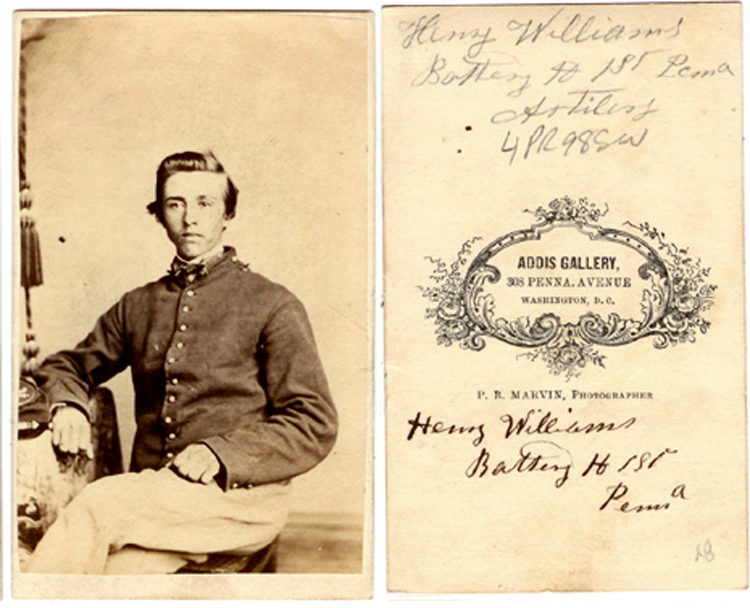 Henry Williams
Battery H 1st Penna
Artilery
4PR98SW
ADDIS GALLERY,
308 PENNA. AVENUE
WASHINGTON, D. C.
P. R. MARVIN, PHOTOGRAPHER
Henry Williams
Battery H 1st
Penna